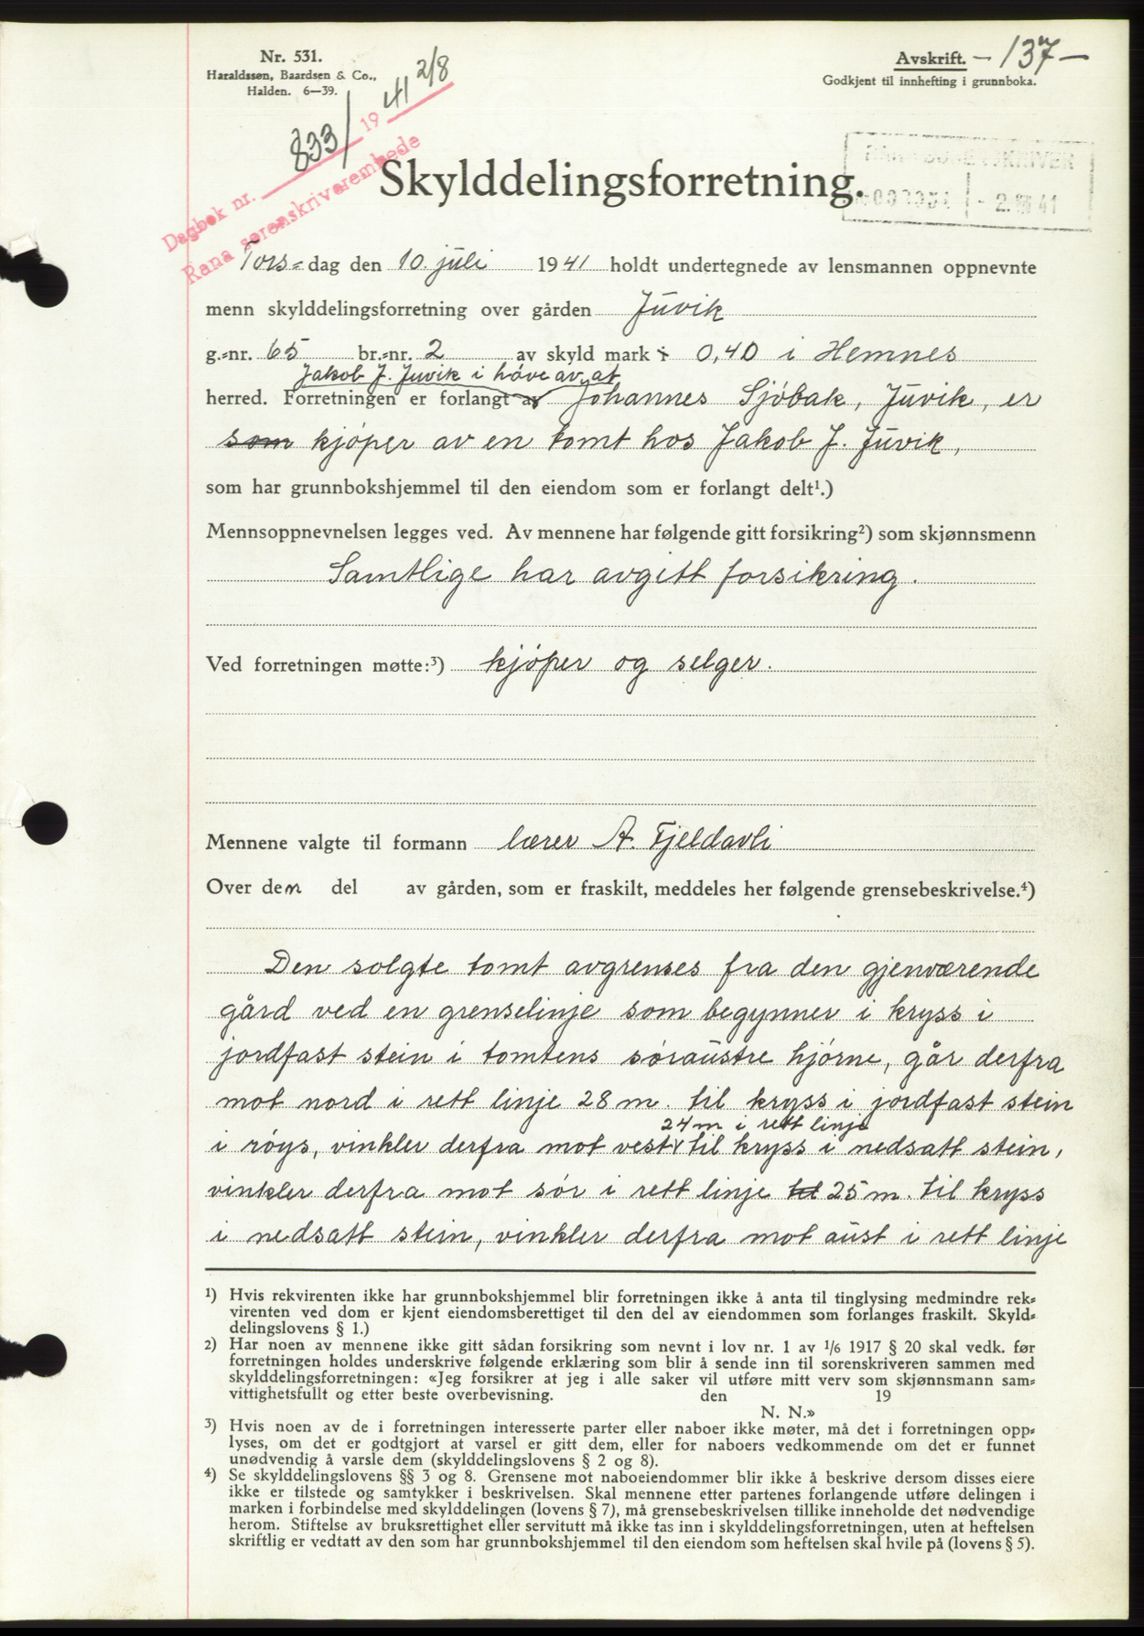 Nr. 531.
Haraldssøn, Baardsen & Co.,
Halden. 6—39.
Avskrift. — 137 —
Godkjent til innhefting i grunnboka.
Dagbok nr. 833 / 1941 2/8
Rana sorenskriverembede
- 2. 41
Skylddelingsforretning.
Tors-dag den 10. juli 1941 holdt undertegnede av lensmannen oppnevnte
menn skylddelingsforretning over gården Juvik
g.-nr. 65 br.-nr. 2 av skyld mark 0,40 i Hemnes
Jakob J. Juvik i høve av at
herred. Forretningen er forlangt av Johannes Sjöbak, Juvik, er
som kjøper av en tomt hos Jakob J. Juvik,
som har grunnbokshjemmel til den eiendom som er forlangt delt¹.)
Mennsoppnevnelsen legges ved. Av mennene har følgende gitt forsikring²) som skjønnsmenn
Samtlige har avgitt forsikring.
Ved forretningen møtte:³) kjøper og selger.
Mennene valgte til formann lærer A. Fjeldavli
Over den del av gården, som er fraskilt, meddeles her følgende grensebeskrivelse.⁴)
Den solgte tomt avgrenses fra den gjenværende
gård ved en grenselinje som begynner i kryss i
jordfast stein i tomtens søraustre hjørne, går derfra
mot nord i rett linje 28 m. til kryss i jordfast stein
24 m i rett linje
i røys, vinkler derfra mot vest til kryss i nedsatt stein,
vinkler derfra mot sør i rett linje til 25 m. til kryss
i nedsatt stein, vinkler derfra mot aust i rett linje
¹) Hvis rekvirenten ikke har grunnbokshjemmel blir forretningen ikke å anta til tinglysing medmindre rek-
virenten ved dom er kjent eiendomsberettiget til den del av eiendommen som forlanges fraskilt. Skyld-
delingslovens § 1.)
²) Har noen av mennene ikke gitt sådan forsikring som nevnt i lov nr. 1 av 1/6 1917 § 20 skal vedk. før
forretningen holdes underskrive følgende erklæring som blir å sende inn til sorenskriveren sammen med
skylddelingsforretningen: «Jeg forsikrer at jeg i alle saker vil utføre mitt verv som skjønnsmann sam-
vittighetsfullt og etter beste overbevisning. den 19
N. N.»
³) Hvis noen av de i forretningen interesserte parter eller naboer ikke møter, må det i forretningen opp-
lyses, om det er godtgjort at varsel er gitt dem, eller for naboers vedkommende om det er funnet
unødvendig å varsle dem (skylddelingslovens § 2 og 8).
⁴) Se skylddelingslovens §§ 3 og 8. Grensene mot naboeiendommer blir ikke å beskrive dersom disses eiere
ikke er tilstede og samtykker i beskrivelsen. Skal mennene etter partenes forlangende utføre delingen i
marken i forbindelse med skylddelingen (lovens § 7), må grensebeskrivelsen tillike inneholde det nødvendige
herom. Stiftelse av bruksrettighet eller servitutt må ikke tas inn i skylddelingsforretningen, uten at heftelsen
skriftlig er vedtatt av den som har grunnbokshjemmel til den eiendom som heftelsen skal hvile på (lovens § 5).